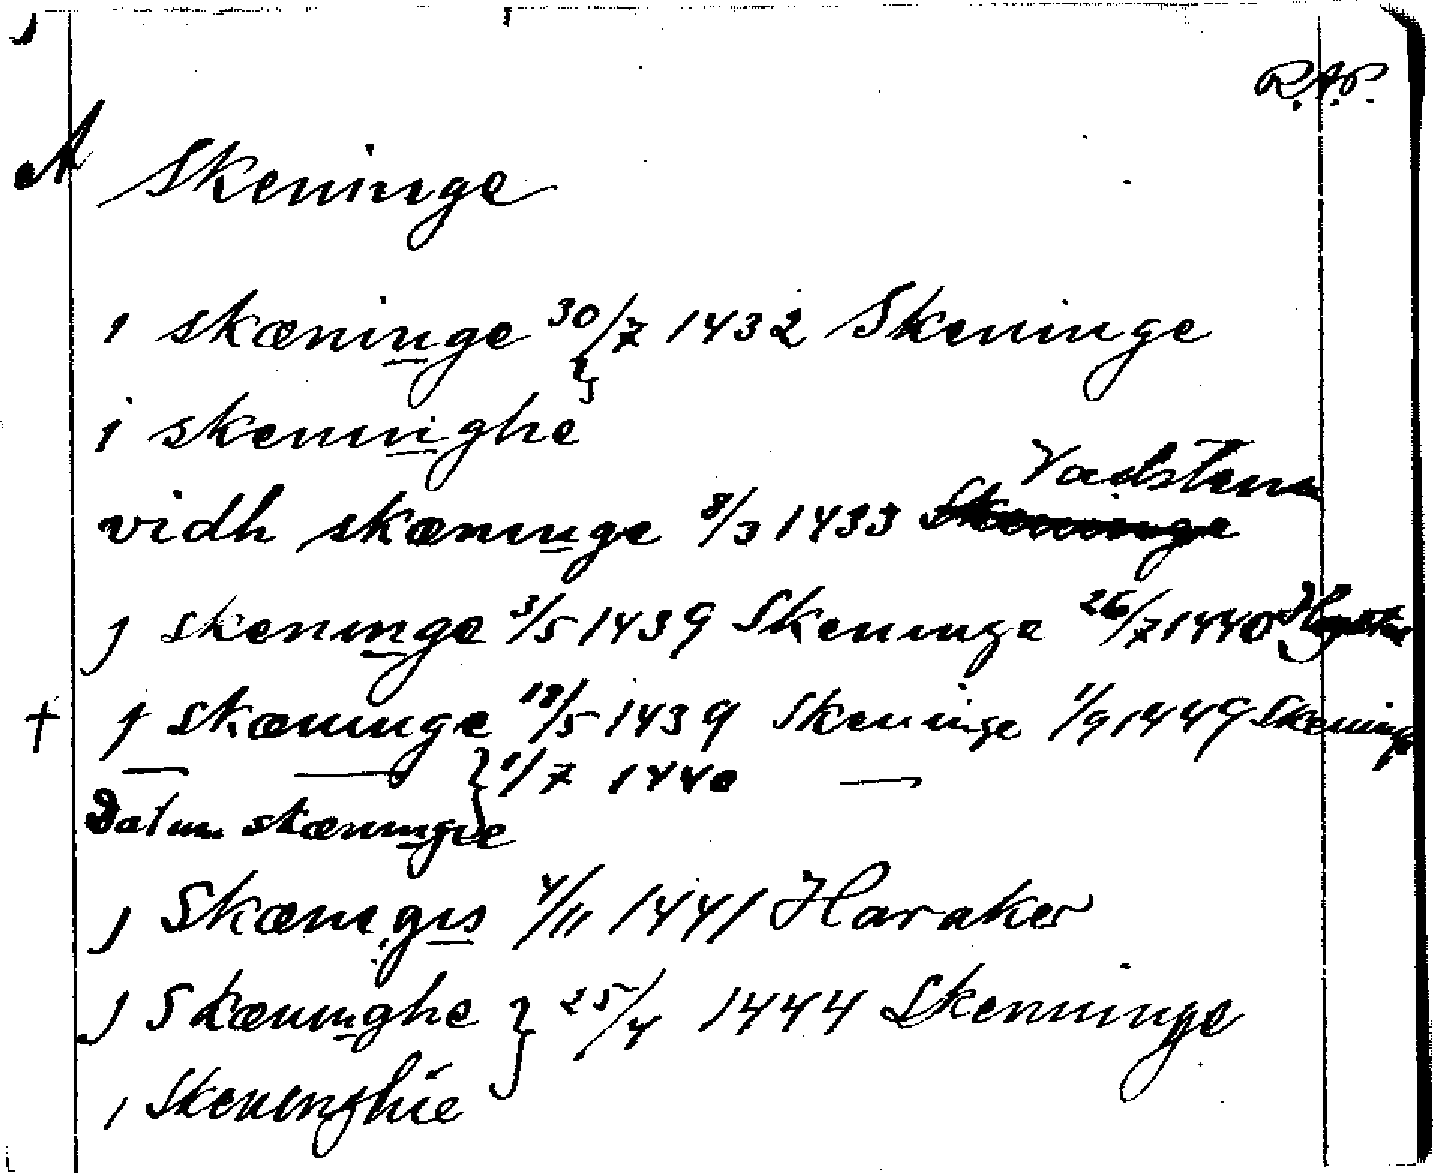 R.A.P.
A Skeninge
i skæninge 30/7 1432 Skeninge
i skeninghe
Vadstena
vidh skæninge 8/3 1433 Skeninge
j skeninge 3/5 1439 Skeninge 26/7 1440
† j skæninge 18/5 1439 Skeninge 1/9 1449 Skeninge
— — 1/7 1440 —
Datum skæningie
j Skænigis 4/11 1441 Haraker
j Skæninghe } 25/4 1444 Skenninge
i Skeninghie